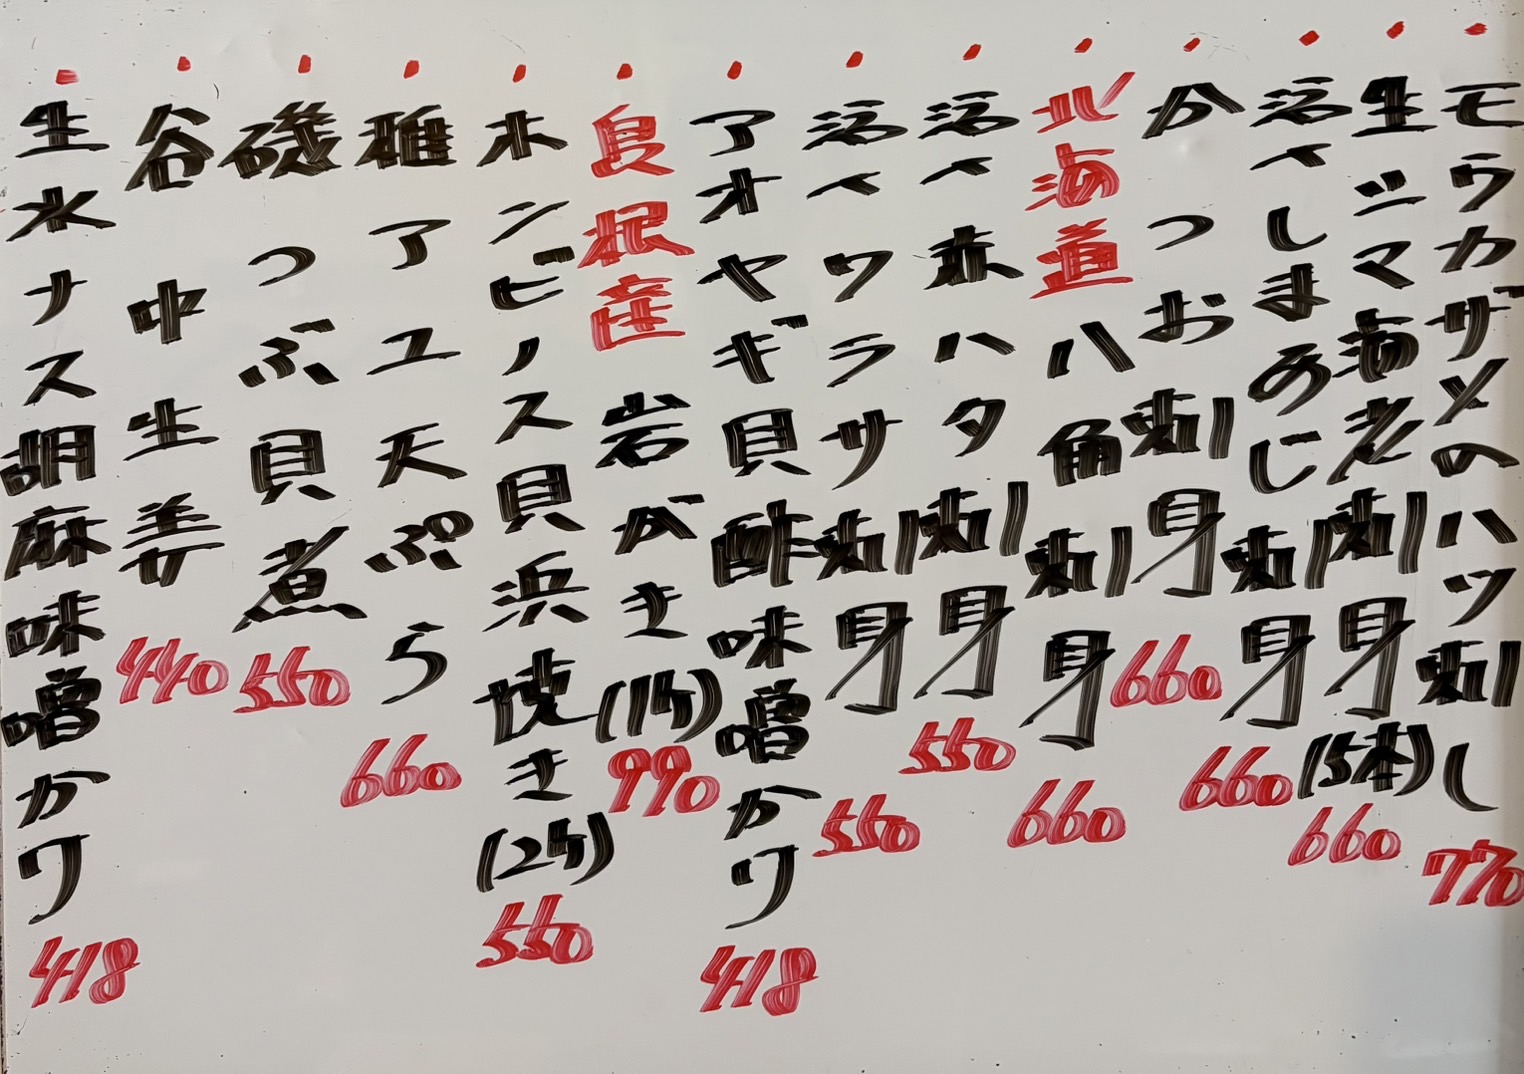 モウカザメのハツ刺し 770
生シマ海老刺身(5本) 660
活〆しまあじ刺身 660
かつお刺身 660
北海道八角刺身 660
活〆赤ハタ刺身 550
活〆ワラサ刺身 550
アオヤギ貝酢味噌かワ 418
島根産岩がき(1ケ) 990
ホンビノス貝浜焼き(2ケ) 550
稚アユ天ぷら 660
磯つぶ貝煮 550
谷中生姜 440
生水ナス胡麻味噌かワ 418